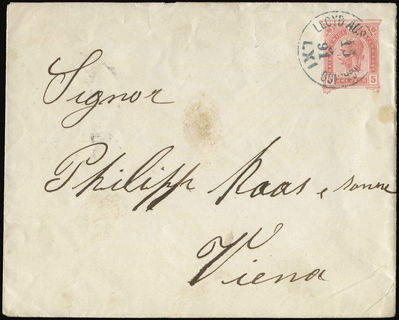 LLOYD AUS
15
91
LXI
5
Signor
Philipp Haas e sonne
Viena